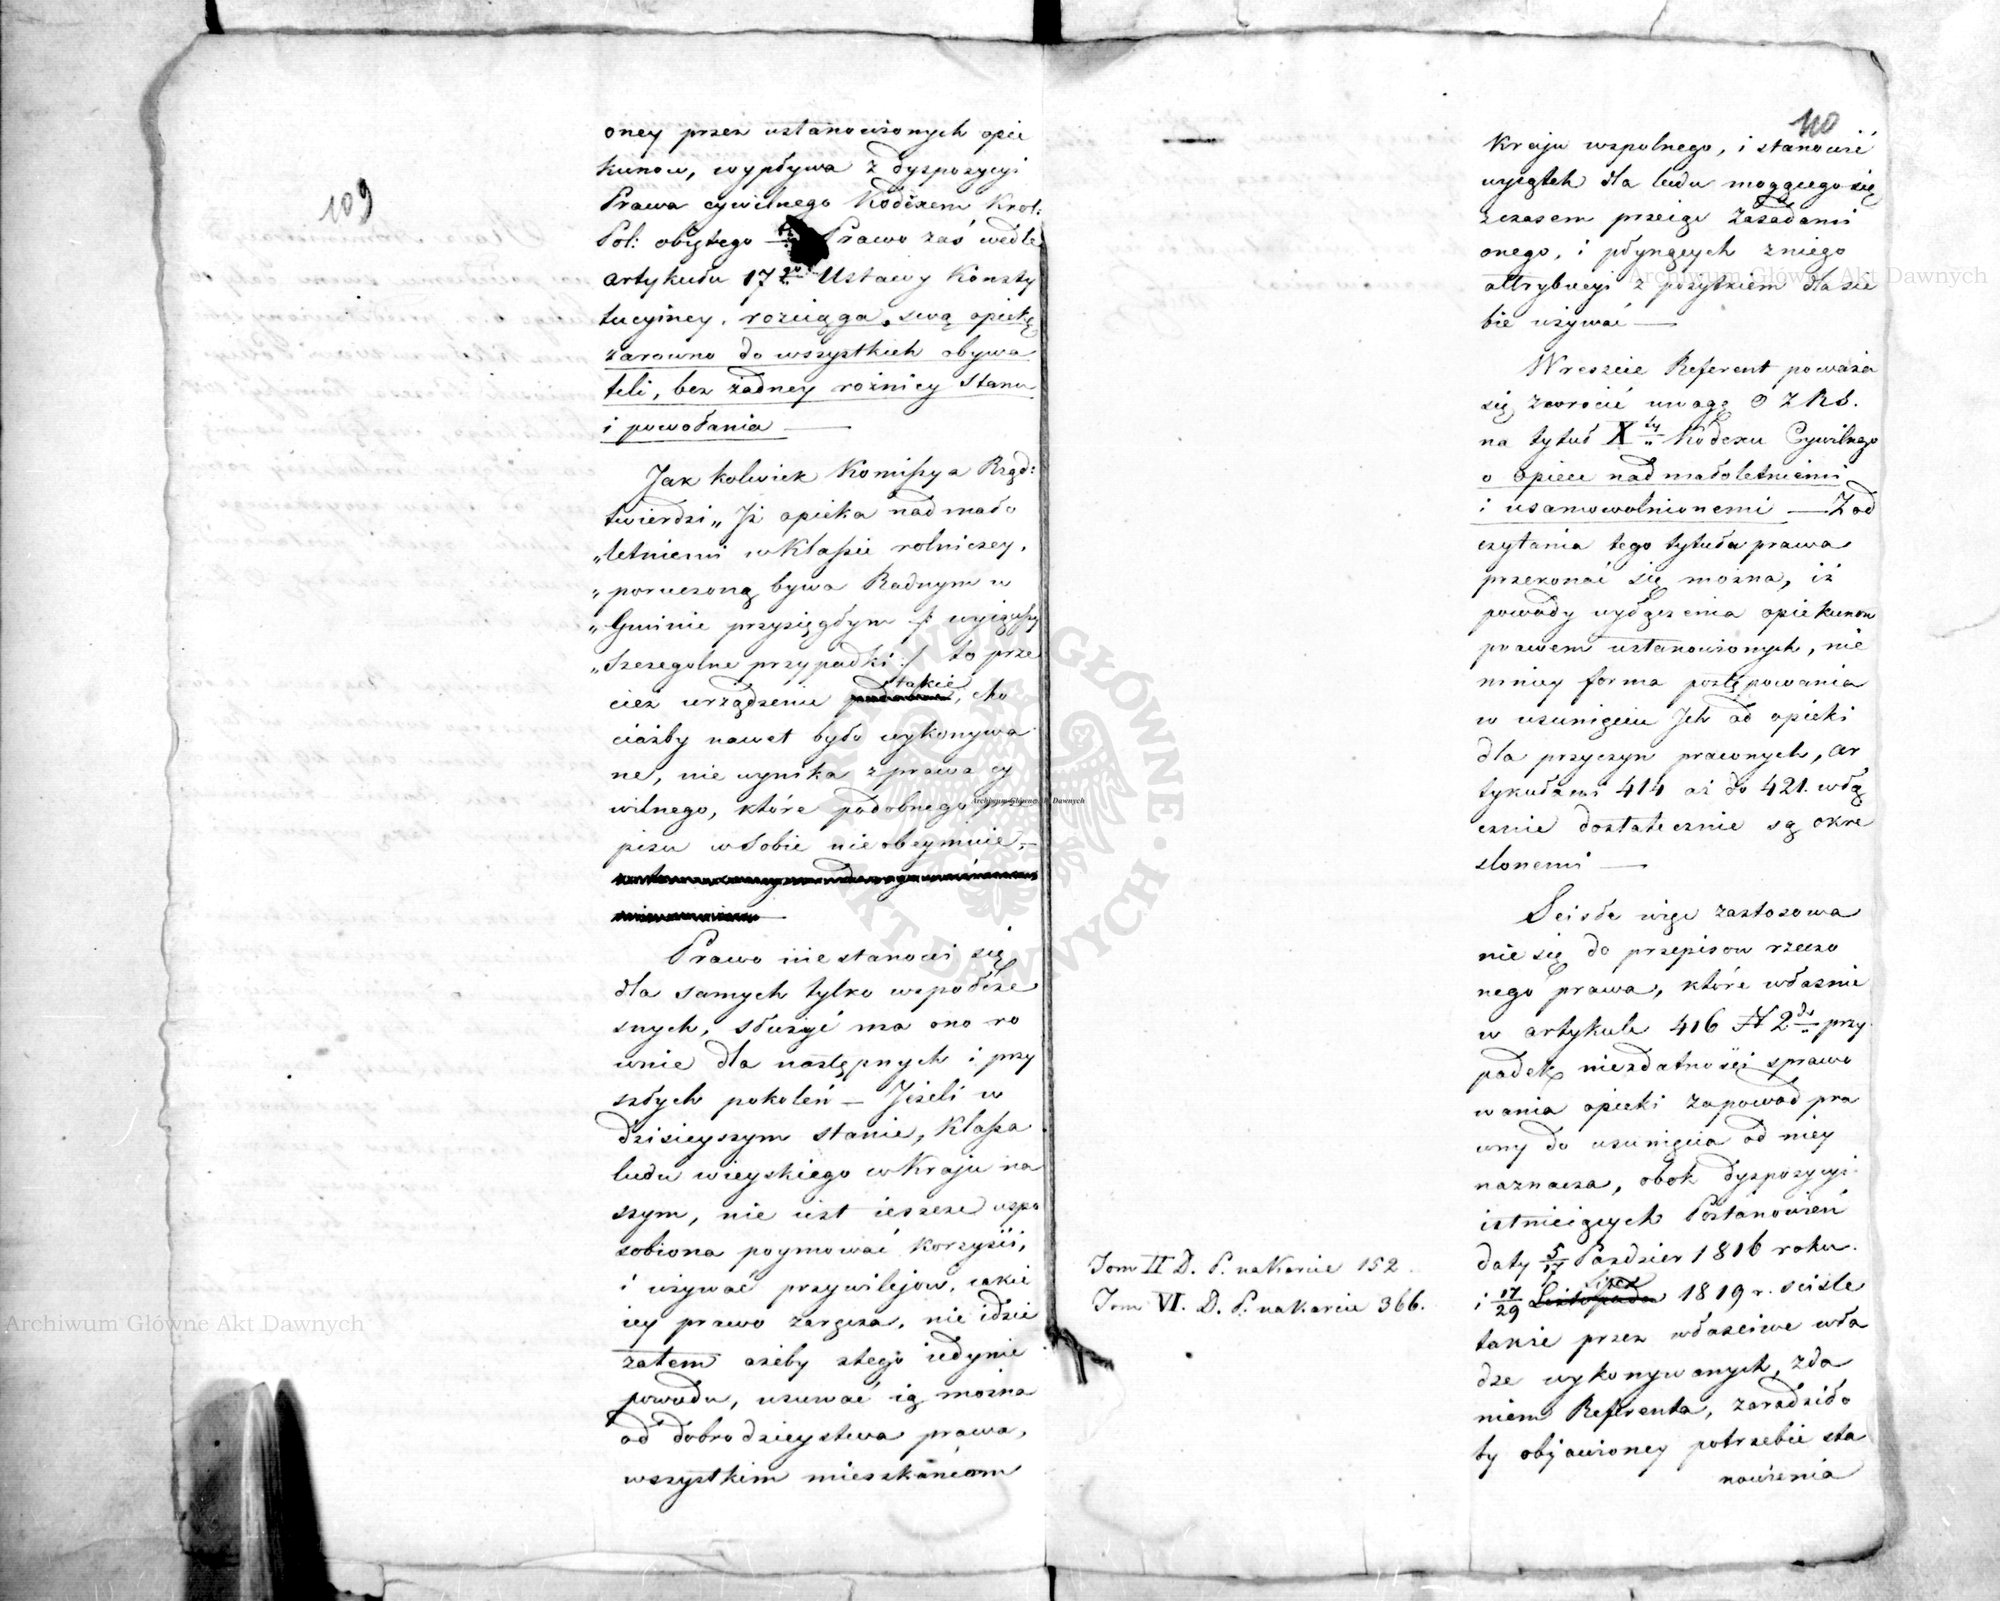 109
oney przez ustanowionych opie
kunow, wypływa z dyspozycyi
Prawa cywilnego Kodexem Krol:
Pol: obiętego Prawo zaś wedle
artykułu 17go Ustawy Konsty
tucyiney, rozciąga swą opiekę
zarowno do wszystkich obywa
teli, bez żadney rożnicy stanu
i powołania —
Jak kolwiek Komissya Rząd:
twierdzi „Iż opieka nad mało
„letniemi w Klassie rolniczey,
„poruczoną bywa Radnym w
„Gminie przysięgłym /: wyiąwszy
„szczegolne przypadki :/ to prze
cież urządzenie takie, cho
ciażby nawet było wykonywa
ne, nie wynika z prawa cy
wilnego, które podobnego prze
pisu w sobie nie obeymuie. —
Prawo nie stanowi się
dla samych tylko wspołcze
snych, służyć ma ono ro
wnie dla następnych i przy
szłych pokoleń — Jeżeli w
dzisieyszym stanie, Klassa
ludu wieyskiego w Kraju na
szym, nie iest ieszcze uspo
sobiona poymować korzyści,
i używać przywilejow, iakie
iey prawo zaręcza, nie idzie
zatem ażeby z tego iedynie
powodu, usuwać ią można
od dobrodzieystwa prawa,
wszystkim mieszkańcom
110
Kraju wspolnego, i stanowić
wyiątek dla ludu mogącego się
z czasem przeiąć zasadami
onego, i płynących z niego
attrybucyi z pożytkiem dla sie
bie używać —
Wreszcie Referent poważa
się zwrocić uwagę O Z R S.
na tytuł Xty Kodexu Cywilnego
o opiece nad małoletniemi
i usamowolnionemi — Z od
czytania tego tytułu prawa
przekonać się można, iż
powody wyłączenia opiekunow
prawem ustanowionych, nie
mniey forma postępowania
w usunięciu Ich od opieki
dla przyczyn prawnych, ar
tykułami 414 aż do 421. włą
cznie dostatecznie są okre
slonemi —
Scisłe więc zastosowa
nie się do przepisow rzeczo
nego prawa, które własnie
w artykule 416 N 2do przy
padek niezdatności sprawo
wania opieki za powod pra
wny do usunięcia od niey
naznacza, obok dyspozycyi
istnieiących Postanowień
daty 5/17 Pazdzier 1816 roku.
i 17/29 Lipca Listopada 1819 r. sciśle
także przez właściwe wła
dze wykonywanych, zda
niem Referenta, zaradziło
by objawioney potrzebie sta
nowienia
Tom II D. P. na Karcie 152
Tom VI. D. P. na Karcie 366.
Archiwum Główne Akt Dawnych
Archiwum Główne Akt Dawnych
Archiwum Główne Akt Dawnych
ARCHIWUM GŁÓWNE · AKT DAWNYCH ·